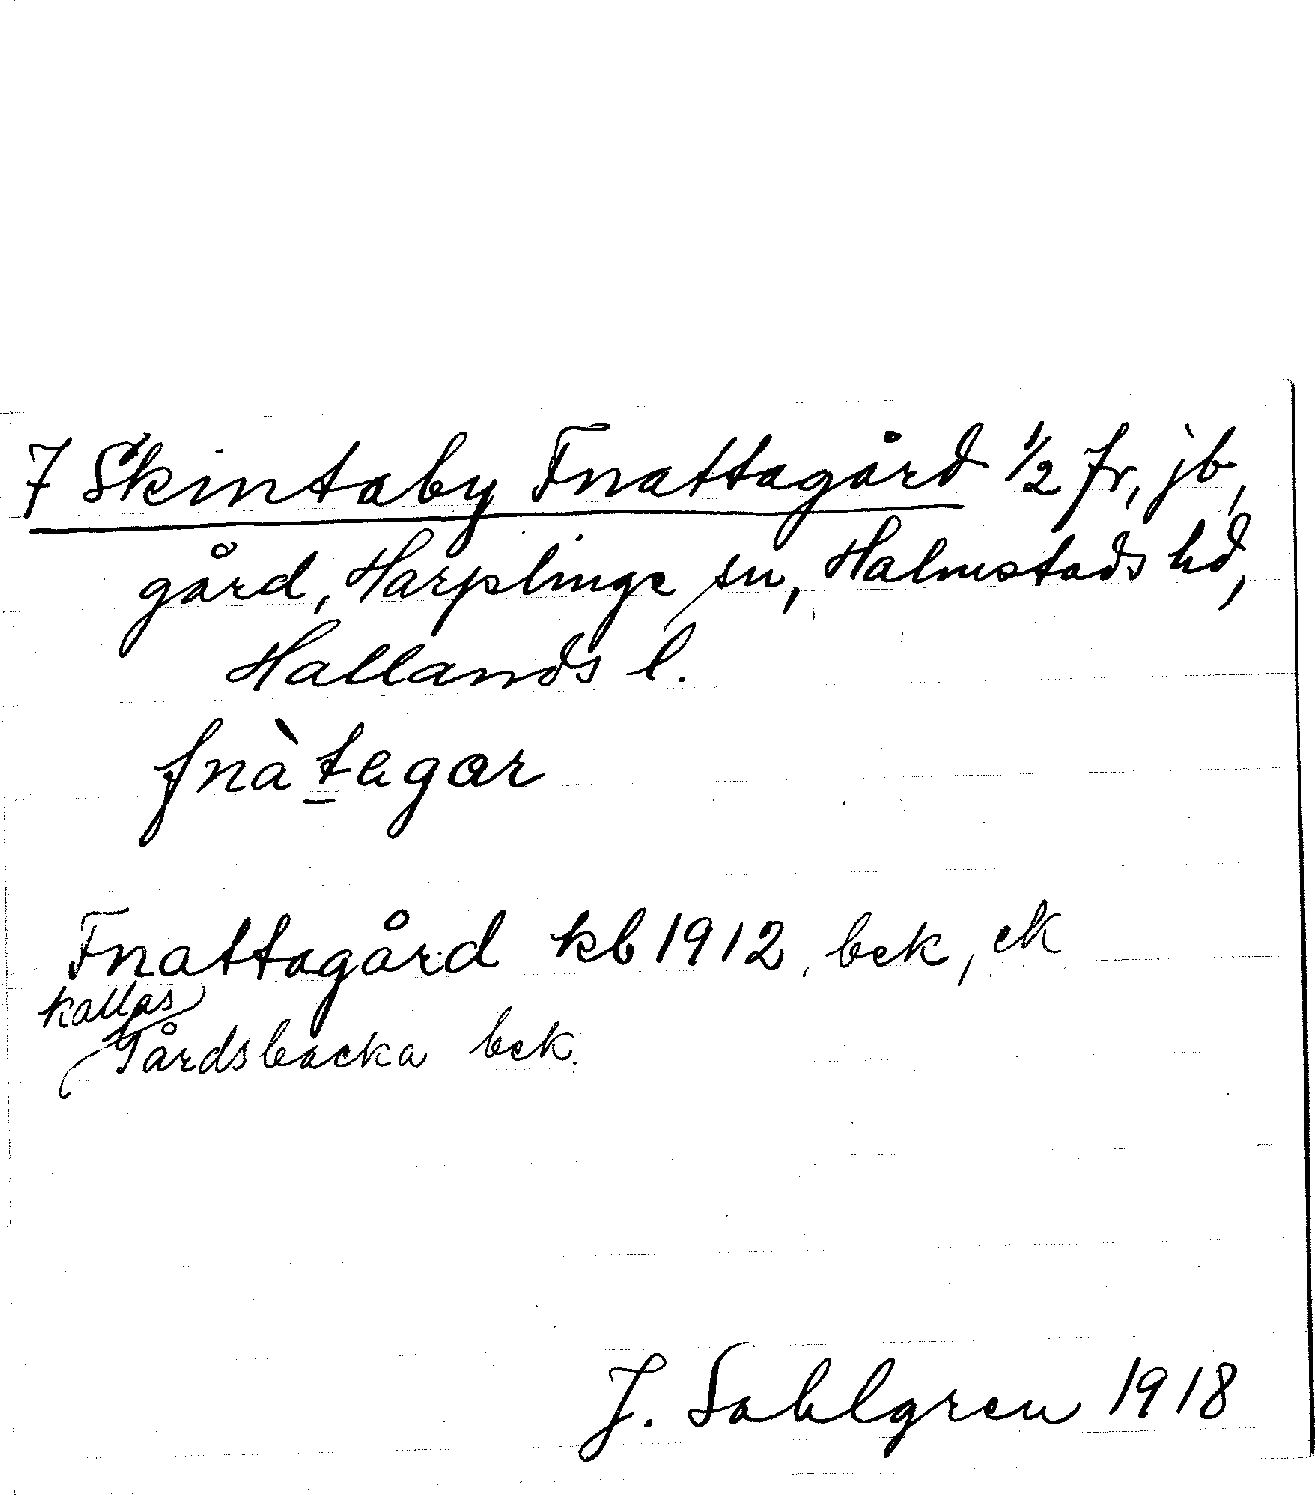 7 Skintaby Fnattagård 1/2 fr, jb,
gård, Harplinge sn, Halmstads hd,
Hallands l.
fnàt̲agar
Fnattagård kb 1912, bek, ek
kallas
Gårdsbacka bek.
J. Sahlgren 1918